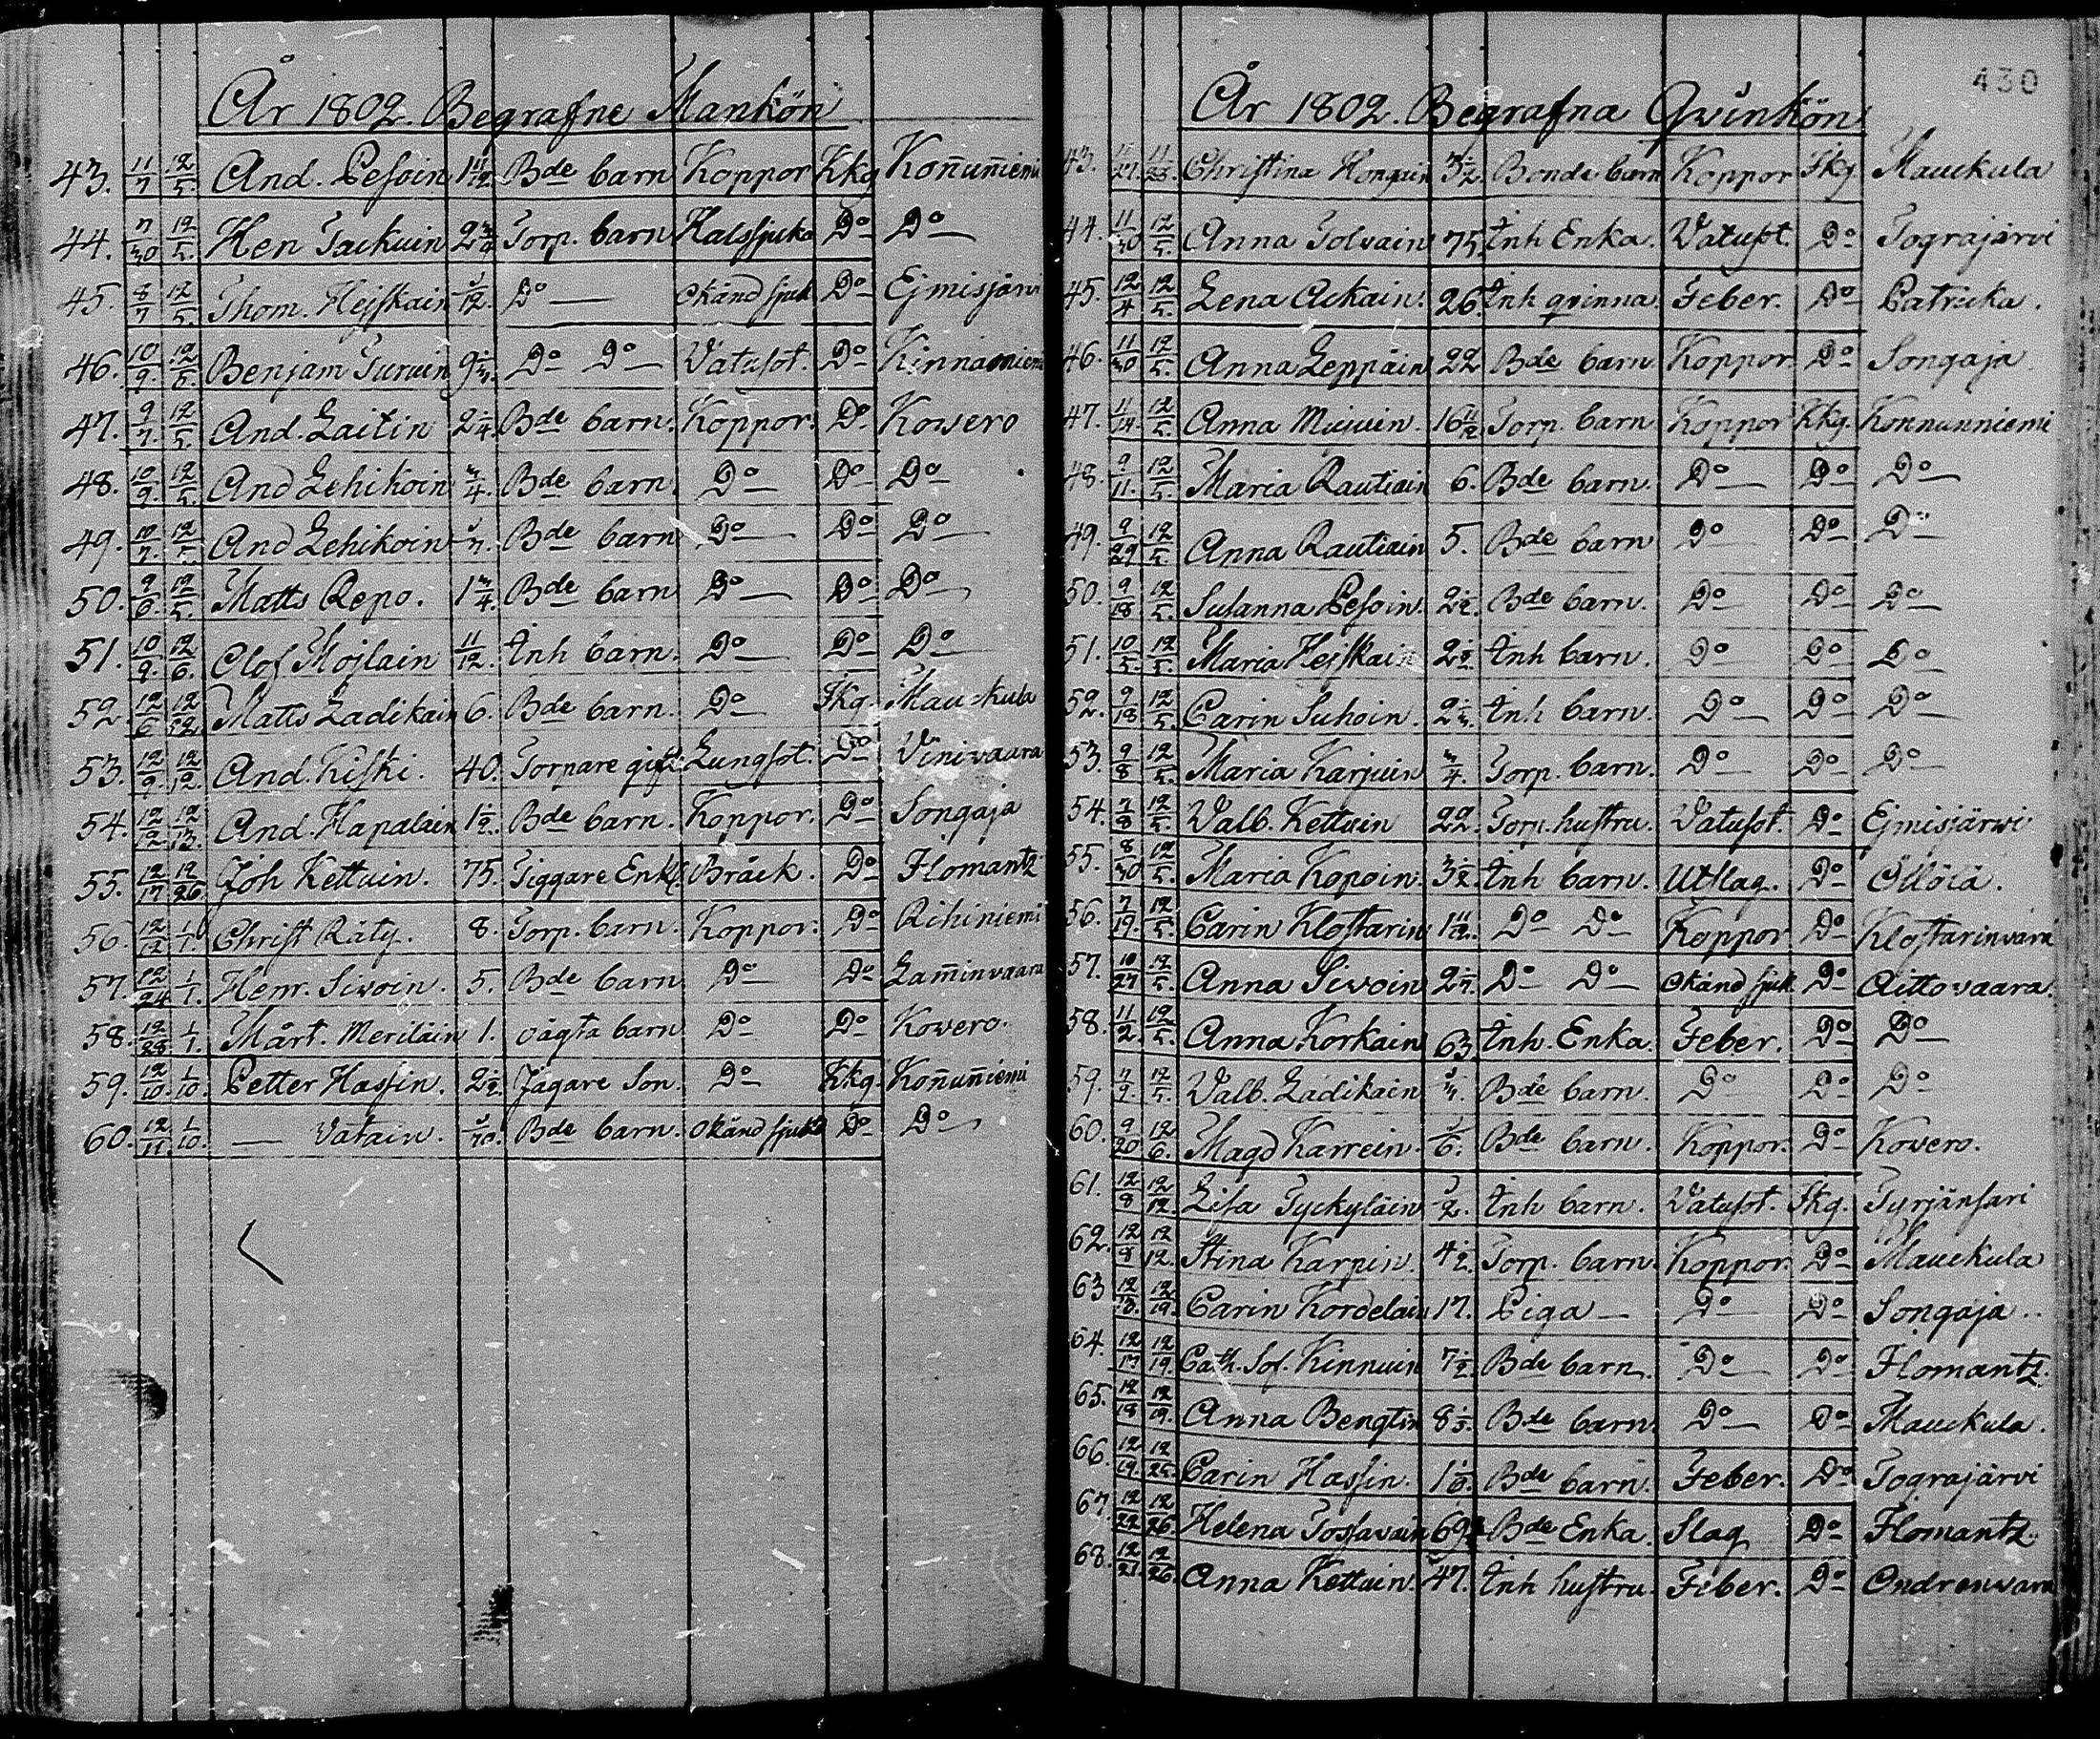 År 1802. Begrafne Mankön
43. 11/7 12/5. And. Pesoin 1 11/12. Bde barn Koppor Kkg Koñuñiemi
44. 7/30 12/5. Hen Tackuin 2 3/4 Torp. barn Halssjuka Do Do
45. 8/7 12/5. Thom. Hejskain /12. Do Okänd sjuk Do Ejmisjärvi
46. 10/9. 12/5. Benjam Turuin 9 Do Do Vatusot. Do Kinnasniemi
47. 9/7. 12/5. And. Laitin 2 1/4. Bde barn. Koppor. Do Kowero
48. 10/9. 12/5. And Lehikoin 3/4. Bde barn Do Do Do
49. 10/7. 12/5. And Lehikoin Bde barn Do Do Do
50. 9/6. 12/5. Matts Repo. 1 3/4. Bde barn Do Do Do
51. 10/9. 12/6. Olof Mojlain 11/12. Inh barn. Do Do Do
52. 12/6 12/12. Matts Ladikain 6. Bde barn. Do Skg. Mauckula
53. 12/9. 12/12. And. Kiski. 40. Torpare gift Lungsot. Do Vinivaara
54. 12/12 12/13. And. Hapalain 1 1/2. Bde barn. Koppor. Do Songaja
55. 12/17 12/26. Joh Kettuin. 75. Tiggare Enkl. Bråck. Do Ilomantz
56. 12/12 1/1. Christ Räty. 8. Torp. barn. Koppor. Do Rihiniemi
57. 12/24 1/1. Henr. Siwoin. 5. Bde barn Do Do Lam̄invaara
58. 12/28 1/1. Mårt. Meriläin 1. oägta barn Do Do Kowero.
59. 12/10. 1/10. Petter Hassin. 2 1/2. Jägare Son. Do Kkg. Koñuñiemi
60. 12/11. 1/10. — Vatain. /10. Bde barn. Okänd sjukd Do Do
430
År 1802. Begrafna Qvinkön
43. 11/27. 11/28. Christina Honguin 3 1/2. Bonde barn Koppor Skg. Mauckula
44. 11/30 12/5. Anna Tolvain 75. Inh Enka. Vatusot. Do Tograjärvi
45. 12/4 12/5. Lena Ackain. 26. Inh qvinna Feber. Do Patricka.
46. 11/30 12/5. Anna Leppäin 22 Bde barn. Koppor. Do Songaja.
47. 11/14. 12/5. Anna Miuin. 16 11/12. Torp. barn Koppor Kkg. Konnunniemi
48. 9/11. 12/5. Maria Rautiain 6. Bde barn. Do Do Do
49. 9/29 12/5. Anna Rautiain 5. Bde barn Do Do Do
50. 9/18 12/5. Susanna Pesoin. 2 1/2. Bde barn. Do Do Do
51. 10/5. 12/5. Maria Hejskain 2 Inh barn. Do Do Do
52. 9/18 12/5. Carin Suhoin. 2 Inh barn. Do Do Do
53. 9/8 12/5. Maria Karjuin 3/4. Torp. barn. Do Do Do
54. 7/8 12/5. Valb. Kettuin 22. Torp. hustru. Vatusot. Do Ejmisjärwi
55. 8/30 12/5. Maria Kopoin. 3 1/2. Inh barn. Utslag. Do Öllölä.
56. 7/19. 12/5. Carin Klostarin 1 11/12. Do Do Koppor Do Klostarinvara
57. 10/27 12/5. Anna Siwoin 2 Do Do Okänd sjuk Do Aittovaara.
58. 11/2. 12/5. Anna Korkain 63. Inh. Enka. Feber. Do Do
59. 7/9. 12/5. Valb. Ladikain Bde barn. Do Do Do
60. 9/20 12/6. Magd Karrein. /6. Bde barn. Koppor. Do Kowero.
61. 12/8 12/12. Lisa Tyckyläin 1/2. Inh barn. Vatusot. Skg. Tyrjänsari
62. 12/8 12/12. Stina Karpin. 4 1/2. Torp. barn. Koppor. Do Mauckula
63 12/13. 12/19. Carin Kordelain 17. Piga Do Do Songaja..
64. 12/17 12/19. Cath. Sof. Kinnuin 7 1/2. Bde barn. Do Do Ilomantz.
65. 12/18 12/19. Anna Bengtin 8 Bde barn. Do Do Mauckula.
66. 12/19. 12/25. Carin Hassin. 1 Bde barn. Feber. Do Tograjärvi
67. 12/22 12/26. Helena Tostavain 69 Bde Enka. Slag Do Ilomantz.
68. 12/21. 12/26. Anna Kettuin. 47. Inh hustru. Feber. Do Ondronvara